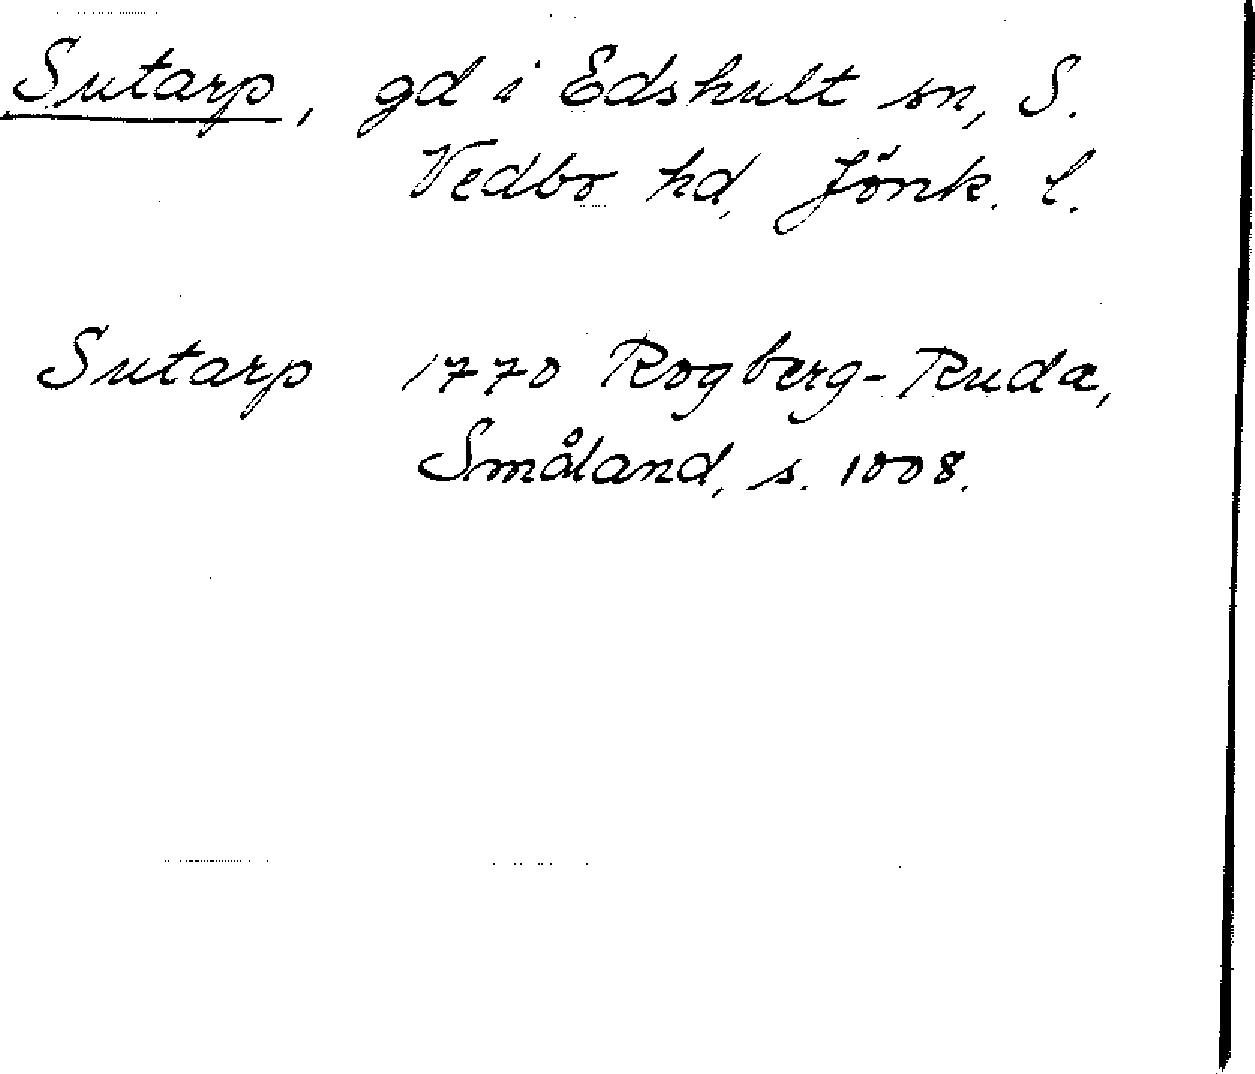 Sutarp, gd i Edshult sn, S.
Vedbo hd, Jönk. l.
Sutarp 1770 Rogberg-Ruda,
Småland, s. 1008.